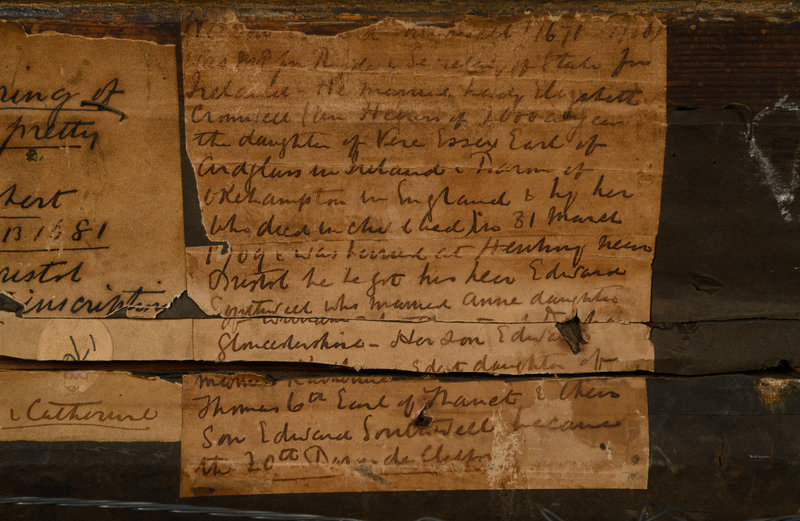 ring of
pretty
hert
13 1681
ristol
inscription
& Catherine
1671
Secretary of State for
Ireland - He married Lady Elizabeth
Cromwell (an Heiress of 2000 a year
the daughter of Vere Essex Earl of
Ardglass in Ireland & Baron of
Okehampton in England & by her
who died in child bed) 31 March
1709 & was buried at Henbury near
Bristol he begot his heir Edward
Southwell who married Anne daughter
of William
Gloucestershire - Her son Edward
married Katharine eldest daughter of
Thomas 6th Earl of Thanet & their
Son Edward Southwell became
the 20th Baron de Clifford